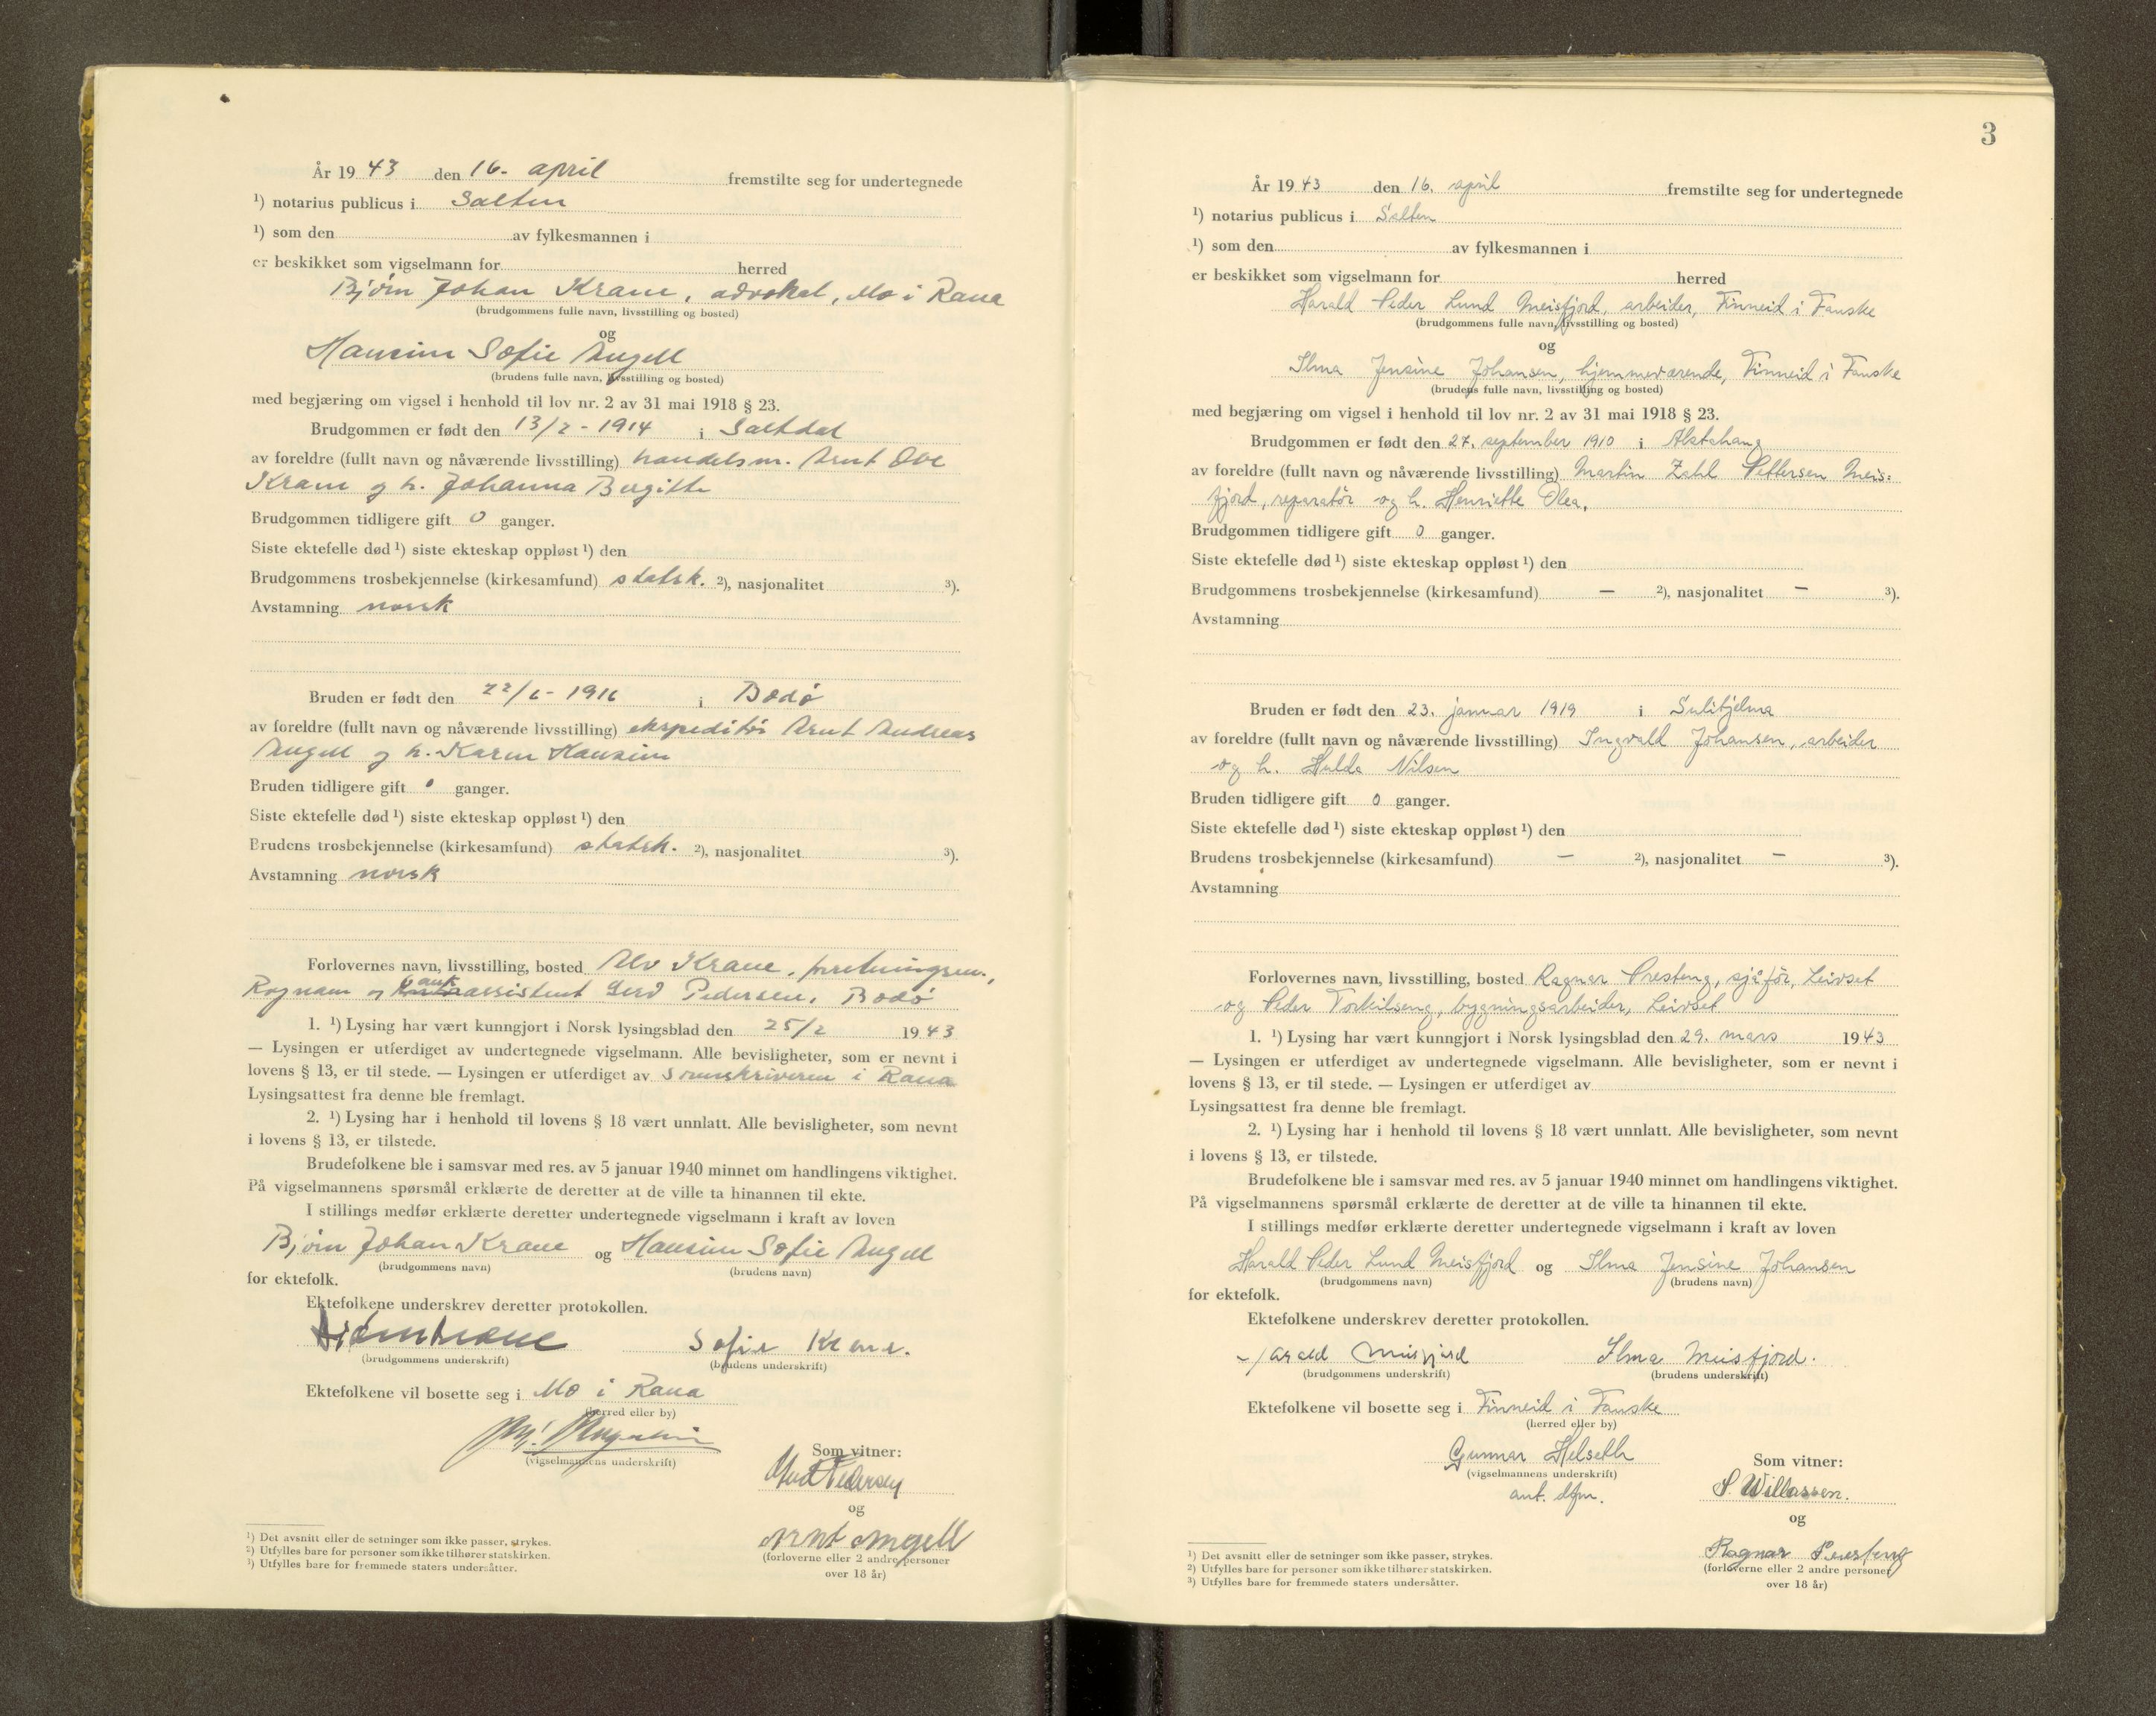 År 1943 den 16. april fremstilte seg for undertegnede
¹) notarius publicus i Salten
¹) som den av fylkesmannen i
er beskikket som vigselmann for herred
Bjørn Johan Krane, advokat, Mo i Rana
(brudgommens fulle navn, livsstilling og bosted)
og
Hansine Sofie Angell
(brudens fulle navn, livsstilling og bosted)
med begjæring om vigsel i henhold til lov nr. 2 av 31 mai 1918 § 23.
Brudgommen er født den 13/2 - 1914 i Saltdal
av foreldre (fullt navn og nåværende livsstilling) handelsm. Arnt Ove
Krane og h. Johanna Birgitte
Brudgommen tidligere gift 0 ganger.
Siste ektefelle død ¹) siste ekteskap oppløst ¹) den
Brudgommens trosbekjennelse (kirkesamfund) statsk. ²), nasjonalitet ³).
Avstamning norsk
Bruden er født den 22/6 - 1916 i Bodø
av foreldre (fullt navn og nåværende livsstilling) ekspeditør Arnt Andreas
Angell og h. Karen Hansine
Bruden tidligere gift 0 ganger.
Siste ektefelle død ¹) siste ekteskap oppløst ¹) den
Brudens trosbekjennelse (kirkesamfund) statsk. ²), nasjonalitet ³).
Avstamning norsk
Forlovernes navn, livsstilling, bosted Alv Krane, forretningsm.,
Rognan og bankassistent Gerd Pedersen, Bodø
1. ¹) Lysing har vært kunngjort i Norsk lysingsblad den 25/2 1943
— Lysingen er utferdiget av undertegnede vigselmann. Alle bevisligheter, som er nevnt i
lovens § 13, er til stede. — Lysingen er utferdiget av Sorenskriveren i Rana
Lysingsattest fra denne ble fremlagt.
2. ¹) Lysing har i henhold til lovens § 18 vært unnlatt. Alle bevisligheter, som nevnt
i lovens § 13, er tilstede.
Brudefolkene ble i samsvar med res. av 5 januar 1940 minnet om handlingens viktighet.
På vigselmannens spørsmål erklærte de deretter at de ville ta hinannen til ekte.
I stillings medfør erklærte deretter undertegnede vigselmann i kraft av loven
Bjørn Johan Krane og Hansine Sofie Angell
(brudgommens navn) (brudens navn)
for ektefolk.
Ektefolkene underskrev deretter protokollen.
Bjørn Krane Sofie Krane.
(brudgommens underskrift) (brudens underskrift)
Ektefolkene vil bosette seg i Mo i Rana
(herred eller by)
(vigselmannens underskrift)
Som vitner:
Gerd Pedersen
og
Arnt Angell
(forloverne eller 2 andre personer
over 18 år)
¹) Det avsnitt eller de setninger som ikke passer, strykes.
²) Utfylles bare for personer som ikke tilhører statskirken.
³) Utfylles bare for fremmede staters undersåtter.
3
År 1943 den 16. april fremstilte seg for undertegnede
¹) notarius publicus i Salten
¹) som den av fylkesmannen i
er beskikket som vigselmann for herred
Harald Peder Lund Meisfjord, arbeider, Finneid i Fauske
(brudgommens fulle navn, livsstilling og bosted)
og
Ilma Jensine Johansen, hjemmeværende, Finneid i Fauske
(brudens fulle navn, livsstilling og bosted)
med begjæring om vigsel i henhold til lov nr. 2 av 31 mai 1918 § 23.
Brudgommen er født den 27. september 1910 i Alstahaug
av foreldre (fullt navn og nåværende livsstilling) Martin Zahl Pettersen Meis=
fjord, reparatør og h. Henriette Olea.
Brudgommen tidligere gift 0 ganger.
Siste ektefelle død ¹) siste ekteskap oppløst ¹) den
Brudgommens trosbekjennelse (kirkesamfund) — ²), nasjonalitet — ³).
Avstamning
Bruden er født den 23. januar 1919 i Sulitjelma
av foreldre (fullt navn og nåværende livsstilling) Ingvald Johansen, arbeider
og h. Hulda Nilsen
Bruden tidligere gift 0 ganger.
Siste ektefelle død ¹) siste ekteskap oppløst ¹) den
Brudens trosbekjennelse (kirkesamfund) — ²), nasjonalitet — ³).
Avstamning
Forlovernes navn, livsstilling, bosted Ragnar Presteng, sjåfør, Leivset
og Peder Torkilseng, bygningsarbeider, Leivset
1. ¹) Lysing har vært kunngjort i Norsk lysingsblad den 29. mars 1943
— Lysingen er utferdiget av undertegnede vigselmann. Alle bevisligheter, som er nevnt i
lovens § 13, er til stede. — Lysingen er utferdiget av
Lysingsattest fra denne ble fremlagt.
2. ¹) Lysing har i henhold til lovens § 18 vært unnlatt. Alle bevisligheter, som nevnt
i lovens § 13, er tilstede.
Brudefolkene ble i samsvar med res. av 5 januar 1940 minnet om handlingens viktighet.
På vigselmannens spørsmål erklærte de deretter at de ville ta hinannen til ekte.
I stillings medfør erklærte deretter undertegnede vigselmann i kraft av loven
Harald Peder Lund Meisfjord og Ilma Jensine Johansen
(brudgommens navn) (brudens navn)
for ektefolk.
Ektefolkene underskrev deretter protokollen.
Harald Meisfjord Ilma Meisfjord.
(brudgommens underskrift) (brudens underskrift)
Ektefolkene vil bosette seg i Finneid i Fauske
(herred eller by)
Gunnar Helseth
(vigselmannens underskrift)
aut. dfm.
Som vitner:
S. Willassen.
og
Ragnar Presteng
(forloverne eller 2 andre personer
over 18 år)
¹) Det avsnitt eller de setninger som ikke passer, strykes.
²) Utfylles bare for personer som ikke tilhører statskirken.
³) Utfylles bare for fremmede staters undersåtter.